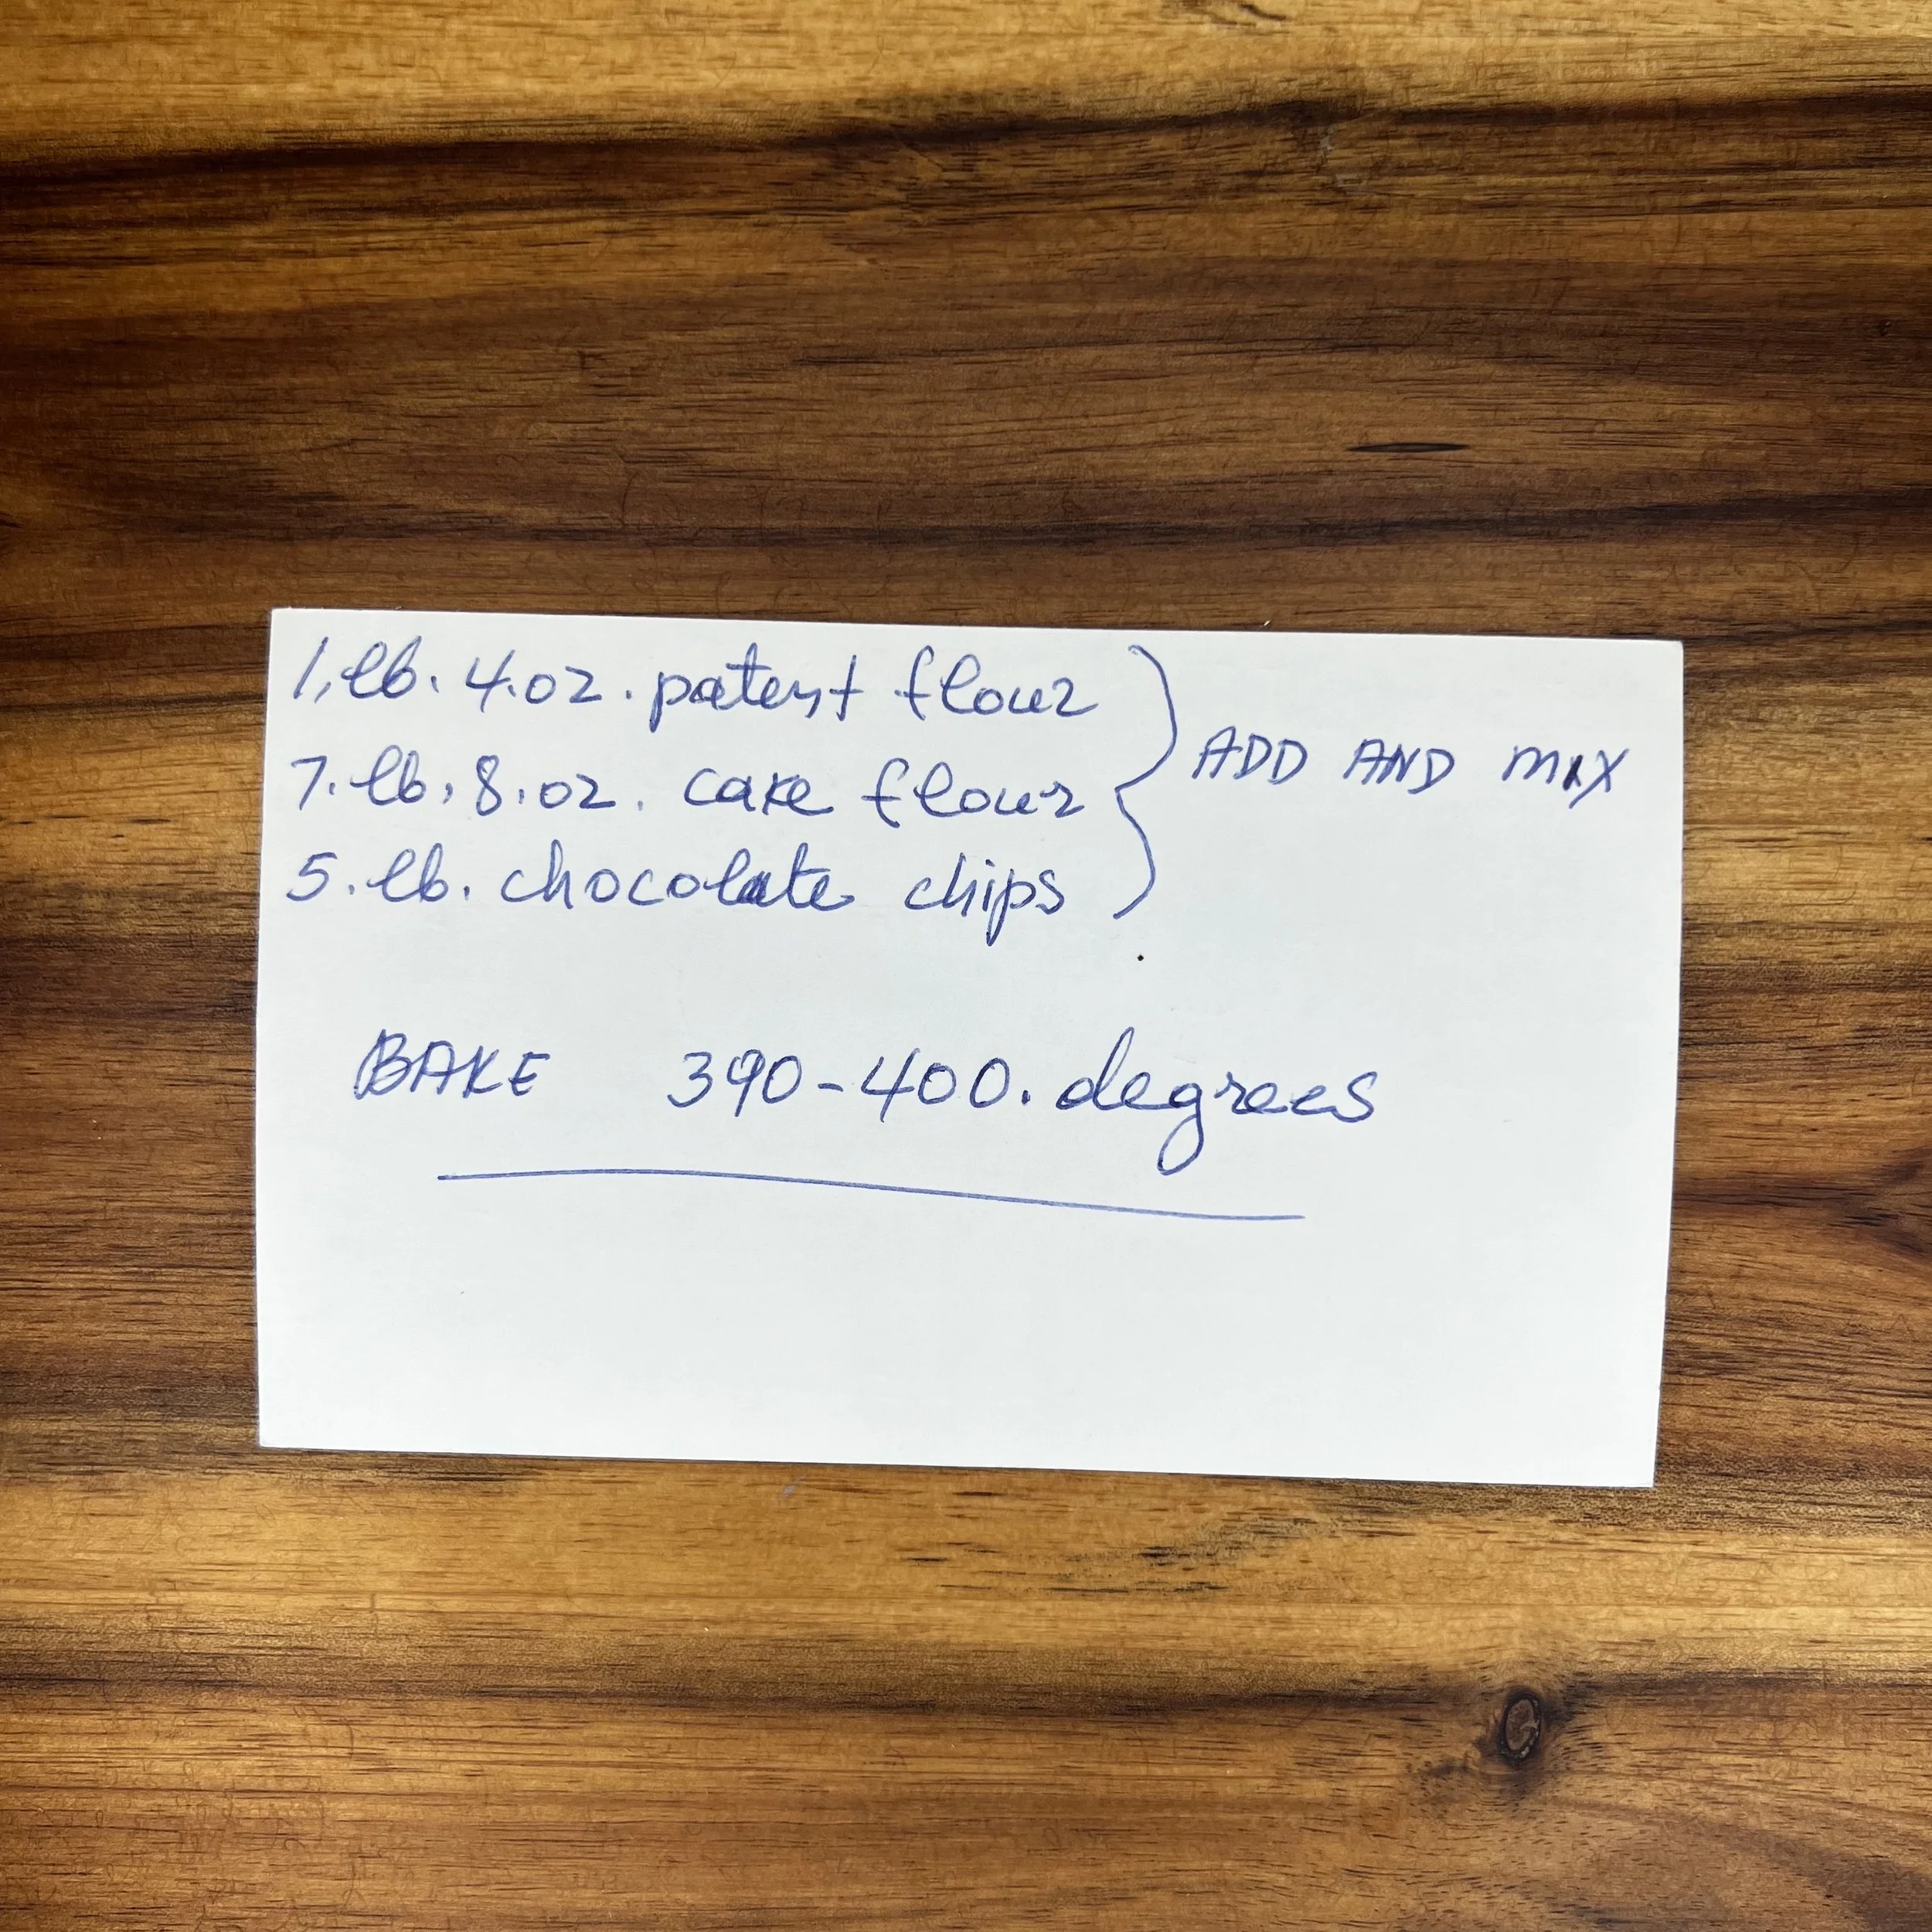 1, lb. 4.oz. patent flour
7. lb, 8.oz. cake flour
5. lb. chocolate chips
ADD AND MIX
BAKE 390-400. degrees